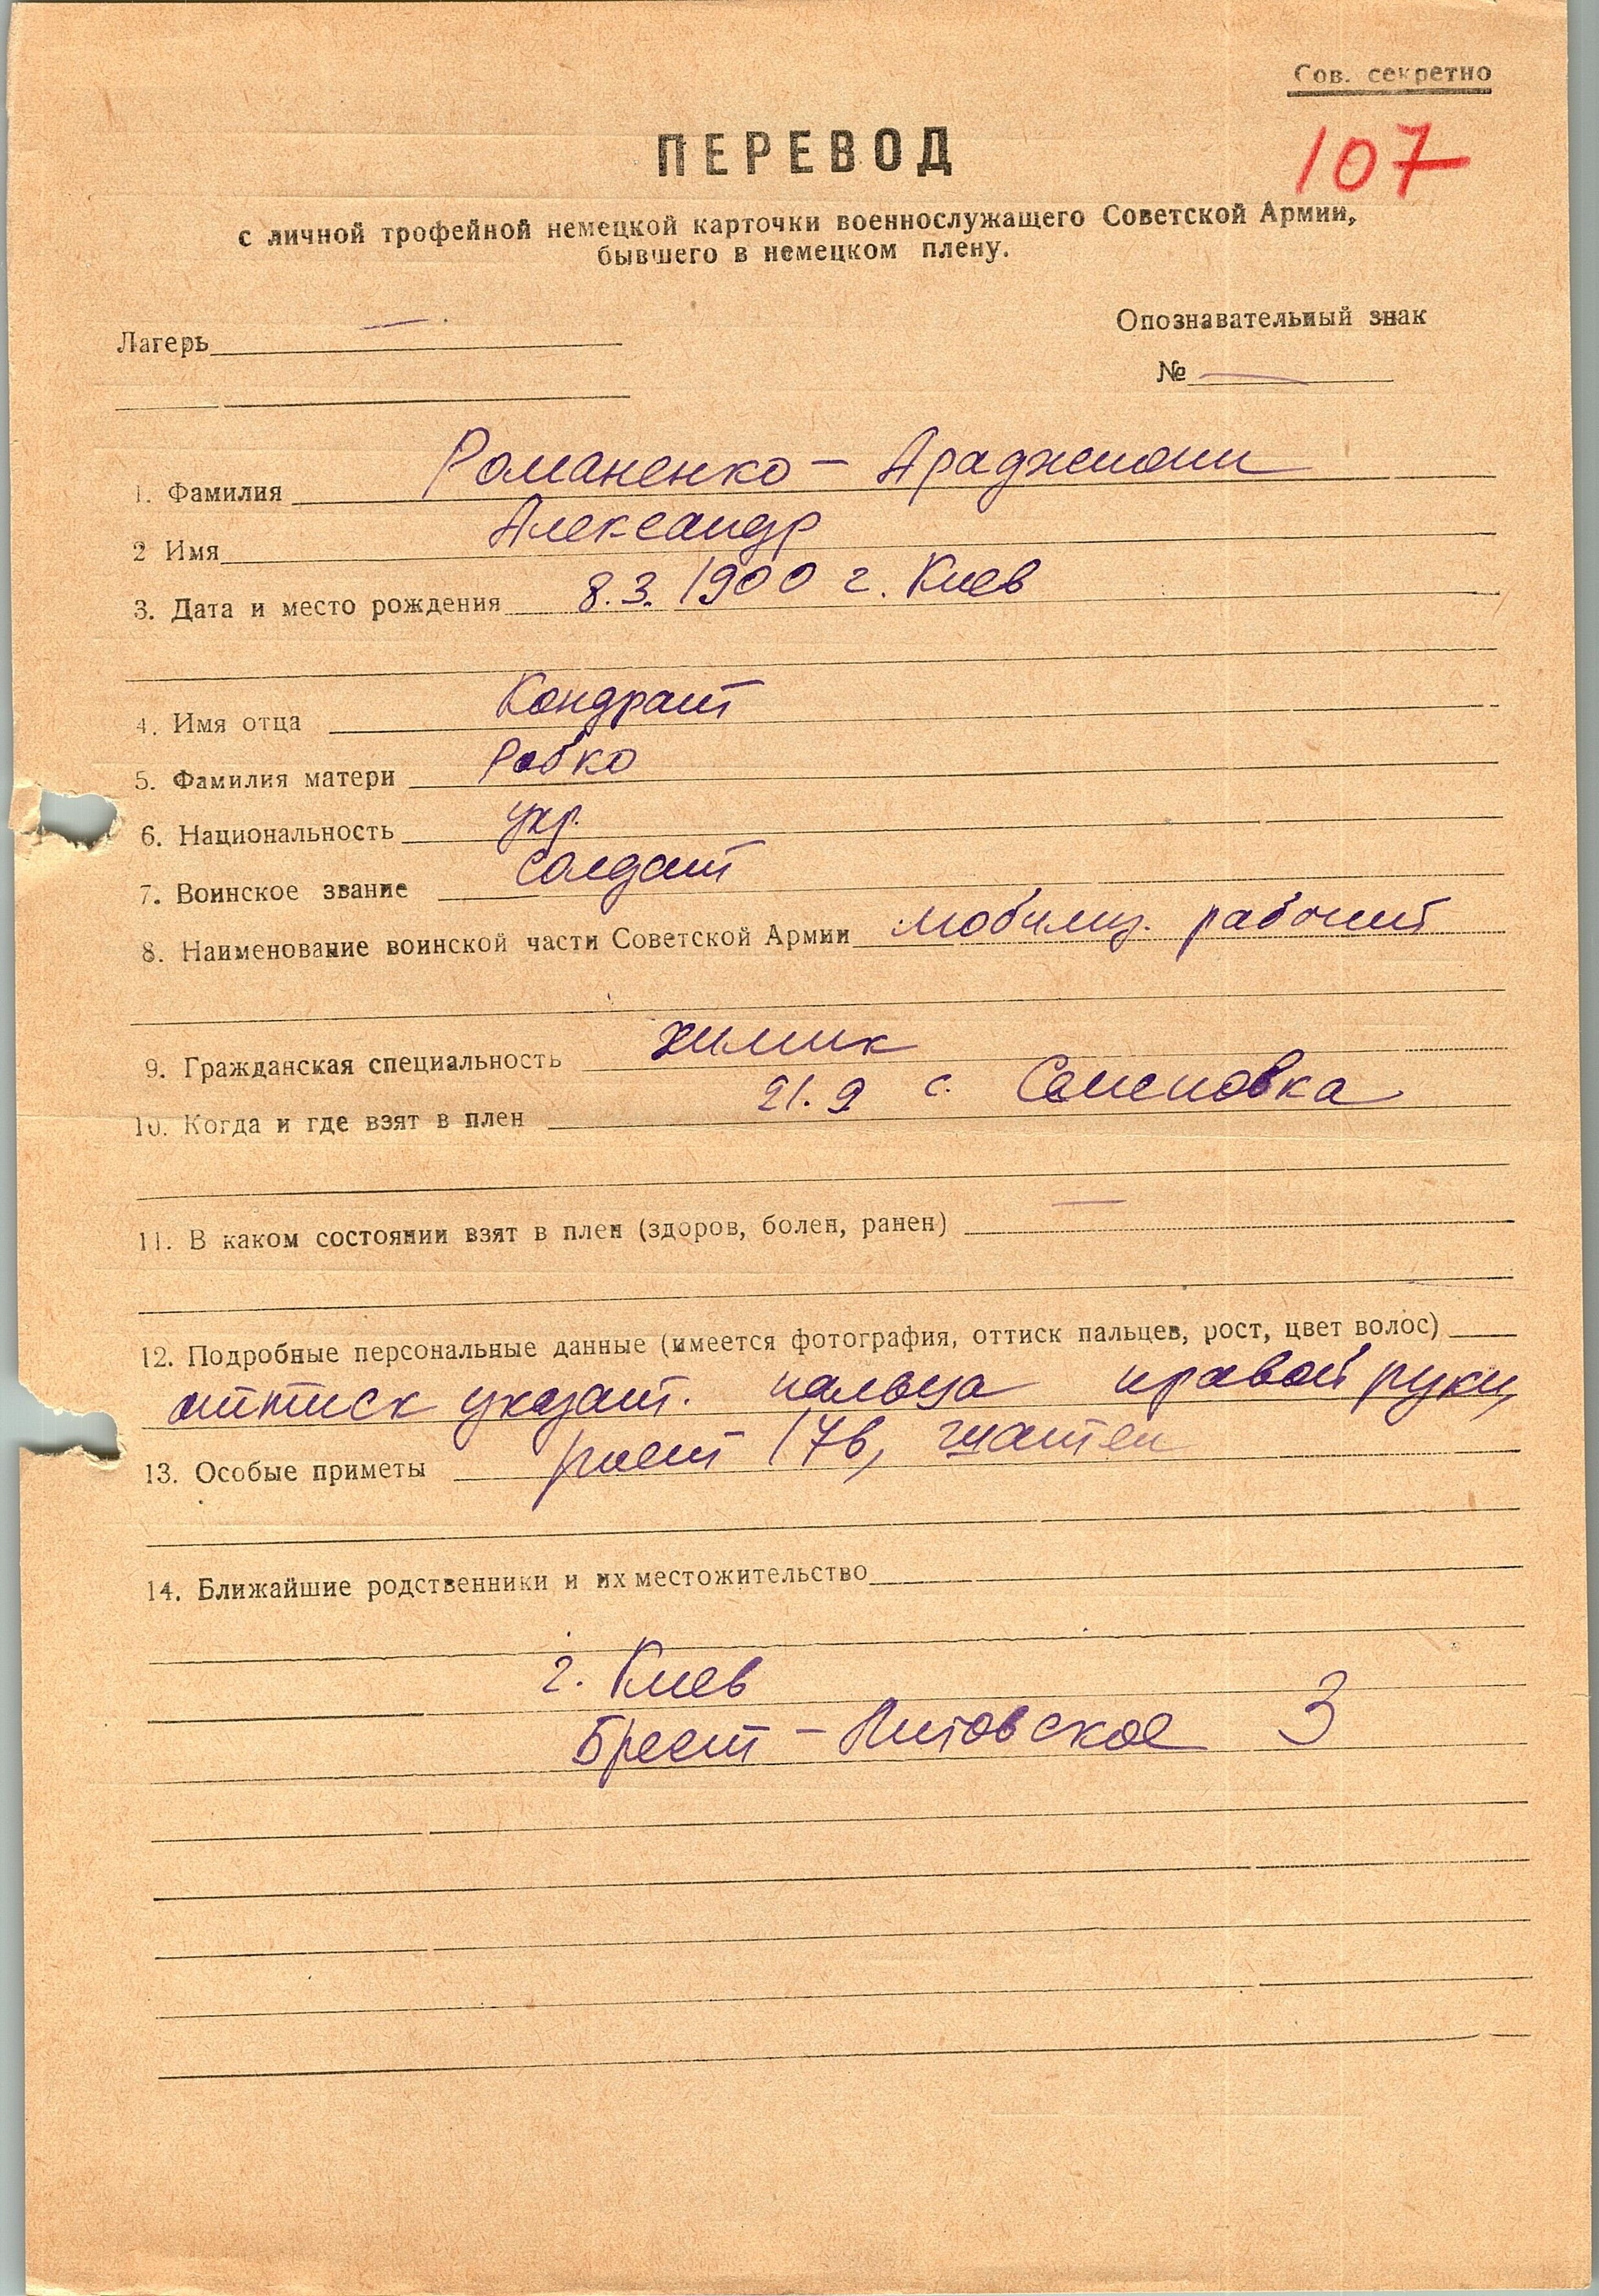 Сов. секретно
107
ПЕРЕВОД
с личной трофейной немецкой карточки военнослужащего Советской Армии,
бывшего в немецком плену.
Лагерь —
Опознавательный знак
№ —
1. Фамилия Романенко –
2 Имя Александр
3. Дата и место рождения 8.3.1900 г. Киев
4. Имя отца Кондрат
5. Фамилия матери Рабко
6. Национальность укр.
7. Воинское звание солдат
8. Наименование воинской части Советской Армии мобилиз. рабочий
9. Гражданская специальность химик
10. Когда и где взят в плен 21.9 с. Семеновка
11. В каком состоянии взят в плен (здоров, болен, ранен) —
12. Подробные персональные данные (имеется фотография, оттиск пальцев, рост, цвет волос)
оттиск указат. пальца правой руки,
13. Особые приметы рост 176, шатен
14. Ближайшие родственники и их местожительство
г. Киев
Брест – Литовское 3